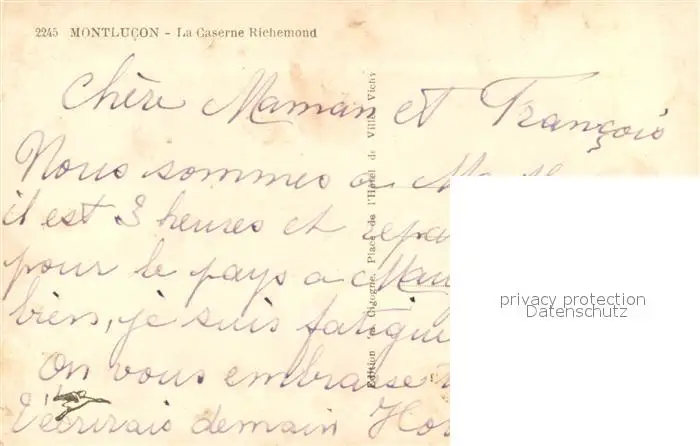 2245 MONTLUÇON - La Caserne Richemond
Chère Maman et François
Nous sommes a
il est 3 heures et
pour le pays a
bien, je suis fatigué
On vous embrasse
demain
Edition "La Cigogne, Place de l'Hôtel de Ville, Vichy
privacy protection
Datenschutz